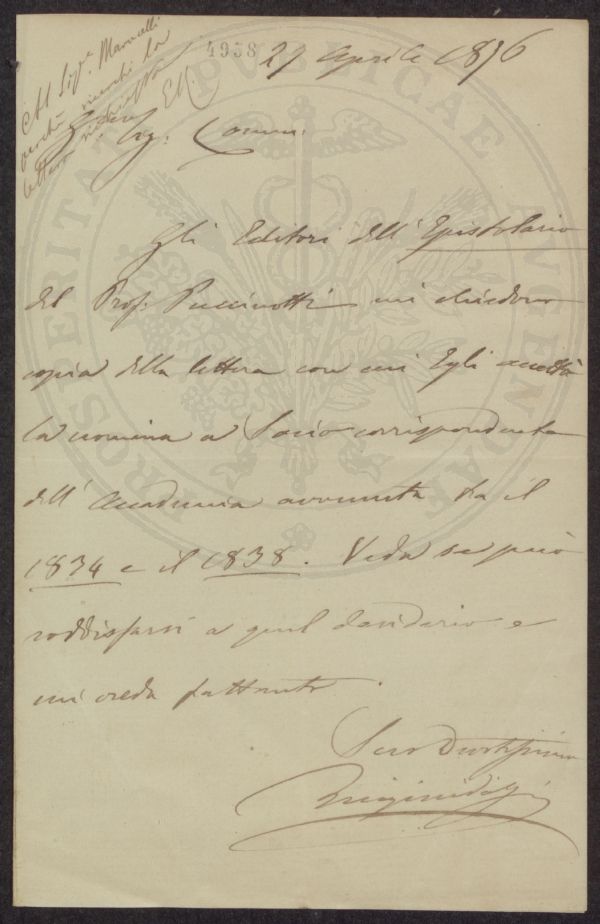 Al Sigr. Marucelli
perchè ricerchi la
lettera richiesta
4958 27 Aprile 1876
Sig. Comm.
Gli Editori dell' Epistolario
del Prof. Puccinotti mi chiedono
copia della lettera con cui Egli accettò
la nomina a Socio corrispondente
dell' Accademia avvenuta tra il
1834 e il 1838. Veda se può
soddisfarsi a quel desiderio e
mi creda frattanto
Suo Devotissimo
PROSPERITATI PVBLICAE AVGENDAE